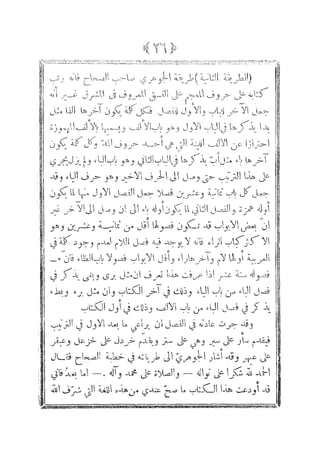 ﴿ ٢٦ ﴾
(الطريقة الثانية) طريقة الجوهري صاحب الصحاح فانه رتب
كتابه على حروف المعجم على النسق المعروف فى المشرق غير أنه
جعل الآخر للباب والأول للفصل فكل كلمة يكون آخرها الفا مثل
بدا يذكرها في الباب الاول وهو باب الالف ويسميها بالألف المهموزة
احترازا عن الالف اللينة التي هي أحد حروف المد وكل كلمة يكون
آخرها باء مثل أب يذكرها في الباب الثاني وهو باب الباء ولم يزل يجري
على هذا الترتيب حتى وصل الى الحرف الاخير وهو حرف الياء وقد
جعل كل باب ثمانية وعشرين فصلا جعل الفصل الاول منها لما يكون
أوله همزة والفصل الثاني لما يكون أوله باء الى ان وصل الى الآخر غير
انّ بعض الابواب قد تكون فصولها أقل من ثمانية وعشرين وهو
الاكثر كباب الراء فانه لا يوجد فيه فصل اللام لعدم وجود كلمة في
العربية أولها لام وآخرها راء وأقل الابواب فصولا باب الظاء فان
فصوله ستة عشر اذا عرفت هذا تعرف ان مثل برى وبنى يذكر في
فصل الباء من باب الياء وذلك في آخر الكتاب وان مثل برء وبطء
يذكر في فصل الباء من باب الالف وذلك في أول الكتاب
وقد جرت عادته في الفصل ان يراعي ما بعد الاول في الترتيب
فيقدم سأر على سير وهي على ستر ويقدّم خردل على خزعل وعبقر
على عبهر وقد أشار الجوهريّ الى طريقته في خطبة الصحاح فقال
الحمد لله شكرا على نواله — والصلاة على محمد وآله . — اما بعدُ فاني
قد أودعت هذا الكتاب ما صحّ عندي من هذه اللغة التي شرّف الله